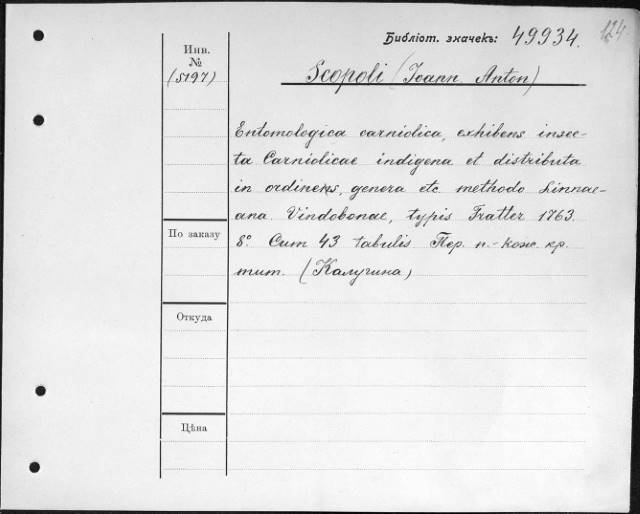 Библіот. значекъ: 49934.
124
Инв.
№
(5197)
Scopoli (Joann. Anton)
Entomologica carniolica, exhibens insec-
ta Carniolicae indigena et distributa
in ordineks, genera etc methodo Linnae-
ana. Vindobonae, typis Tratter 1763.
8°. Cum 43 tabulis Пер. п.-кож. кр.
тит. (Калугина)
По заказу
Откуда
Цѣна